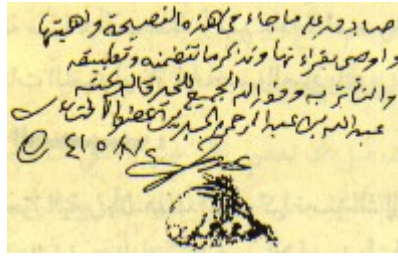 صادق على ما جاء في هذه النصيحة وأهميتها
وأوصي بقراءتها وتذكر ما تتضمنه وتطبيقه
والتأثر به ووفق الله الجميع للخير قاله وكتبه
عبد الله بن عبد الرحمن الجبرين عضو الافتاء